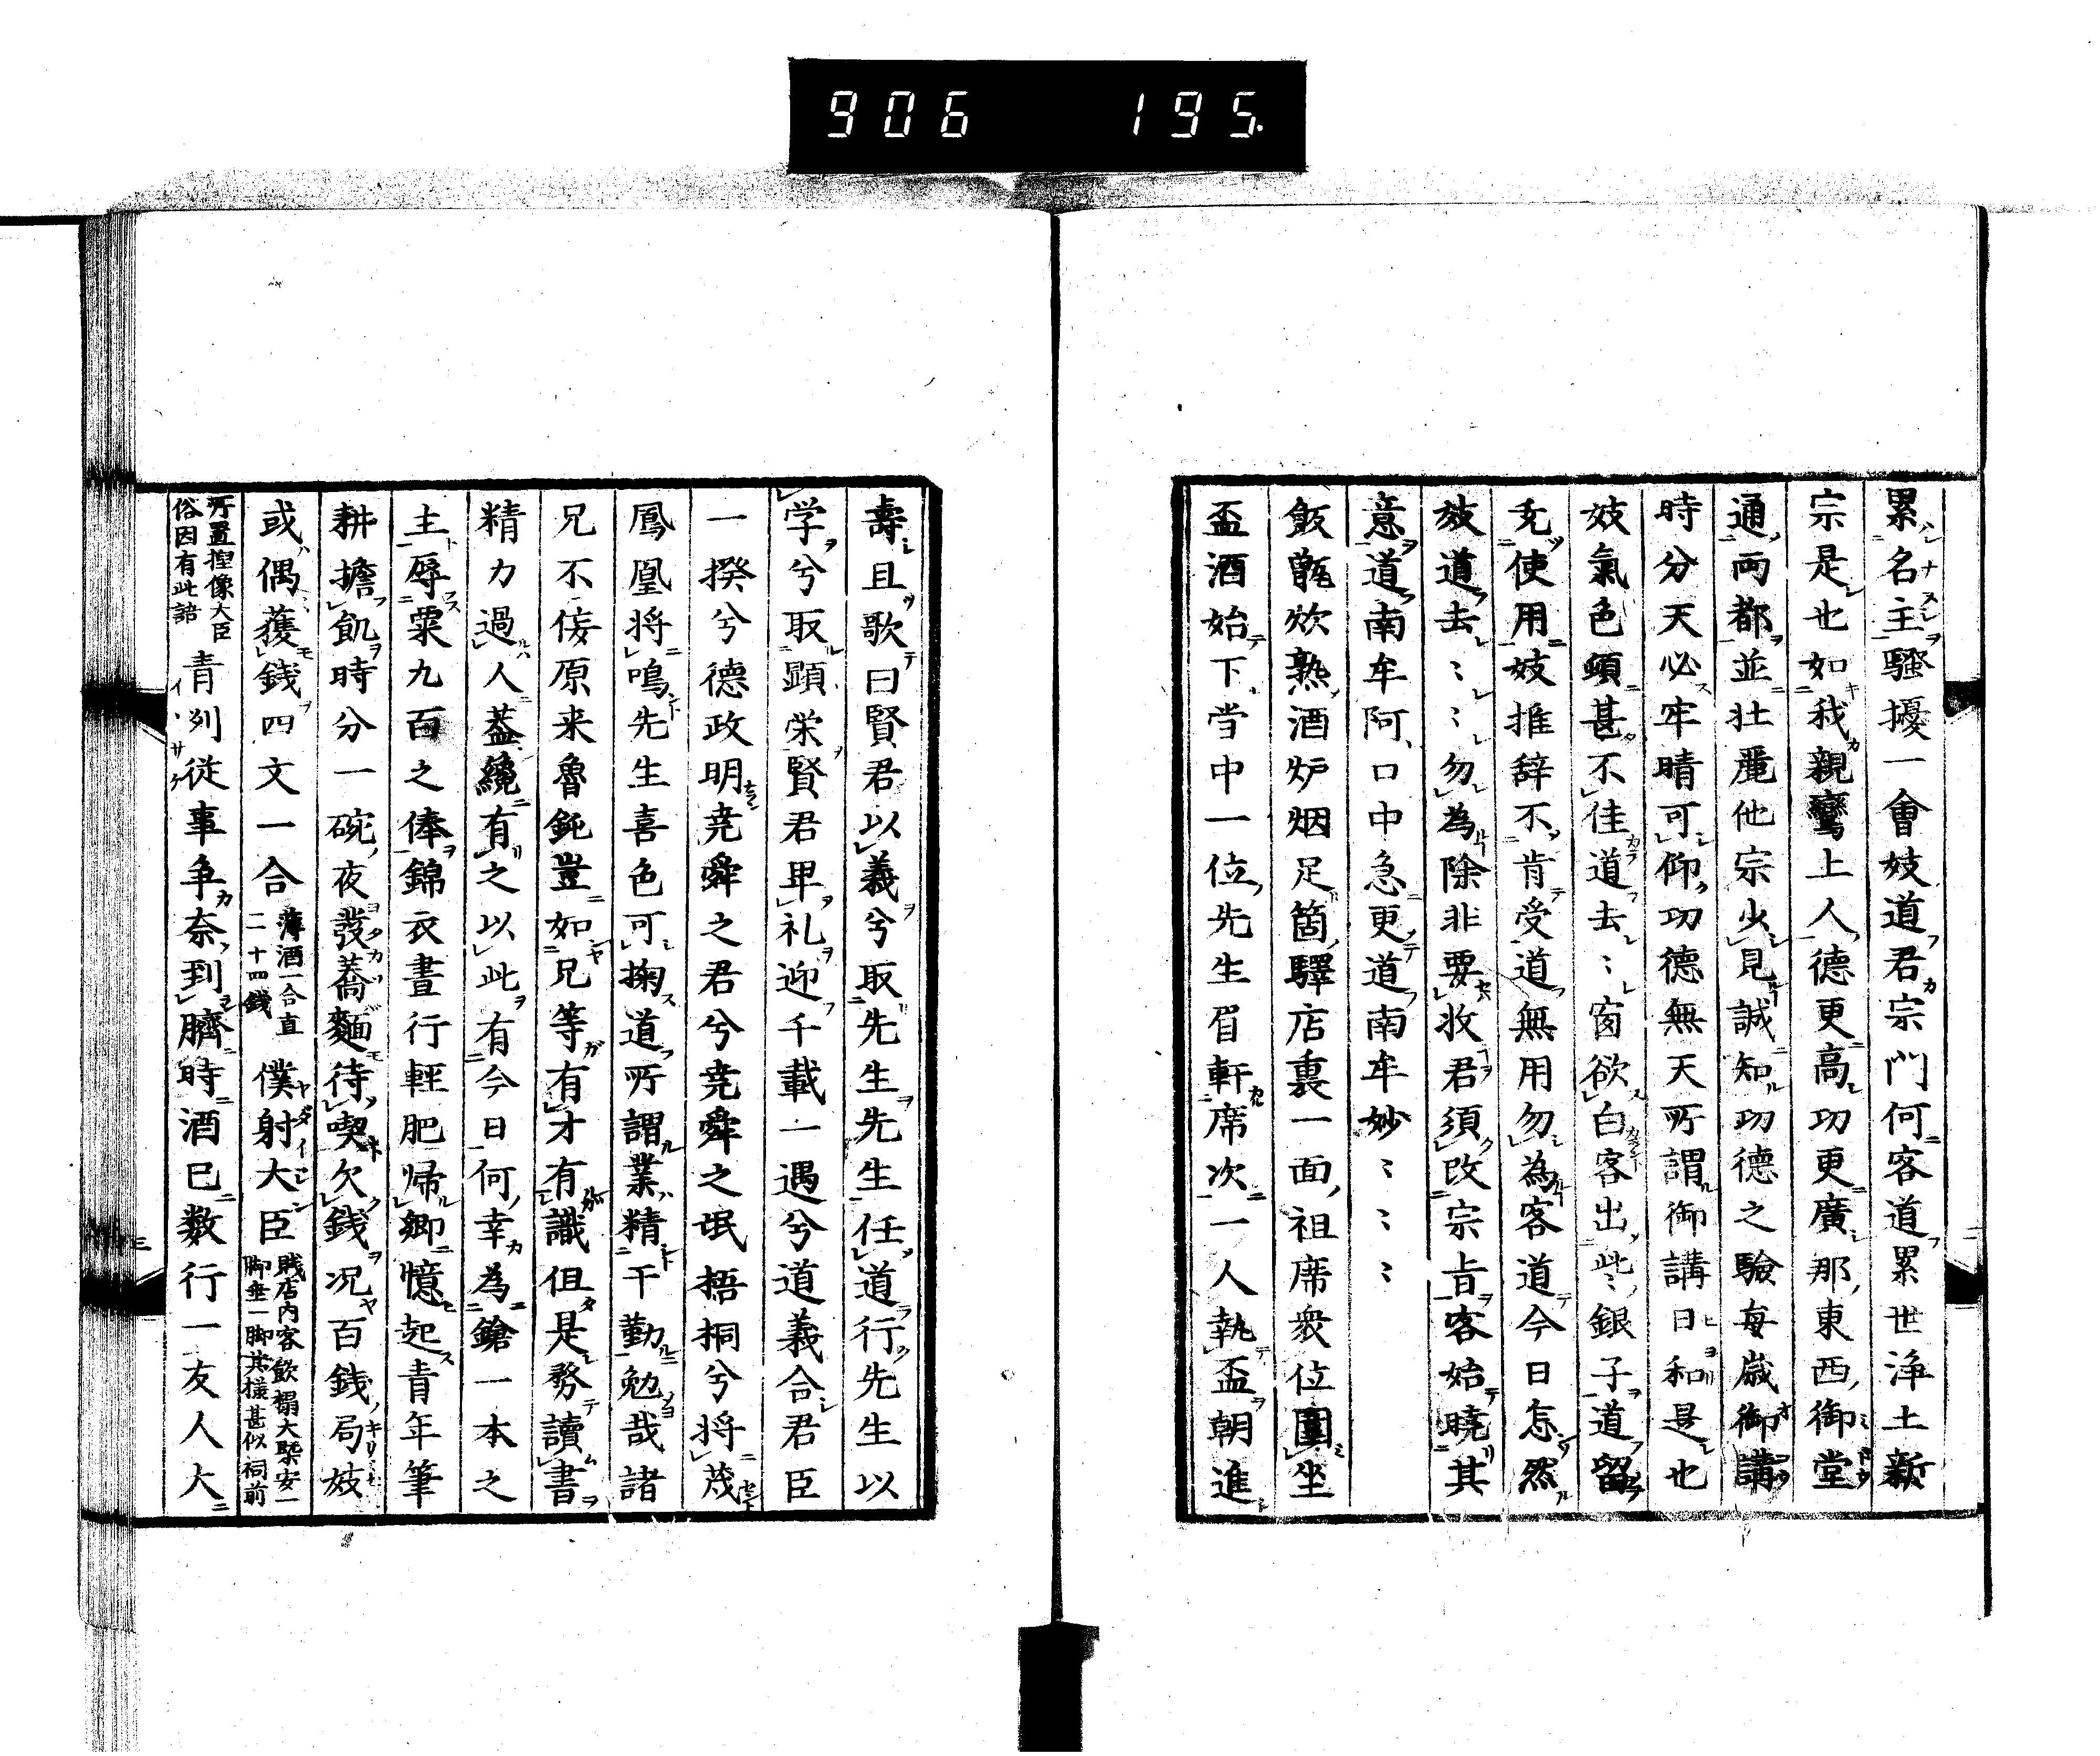 906 195.
累名主騷擾一會妓道君宗門何客道累世浄土新
宗是也如我親鸞上人德更高功更廣那東西御堂
通両都並壮麗他宗少見誠知功德之驗每歳御講
時分天必牢晴可仰功德無天所謂御講日和是也
妓氣色頓甚不佳道去〻窗欲白客出些銀子道留
充使用妓推辞不肯受道無用勿為客道今日怎然
妓道去〻〻勿為除非要收君須改宗旨客始曉其
意道南牟阿口中急更道南牟妙〻〻〻
飯甑炊熟酒炉烟足箇驛店裏一面祖席衆位圍坐
盃酒始下当中一位先生眉軒席次一人執盃朝進
壽且歌曰賢君以義兮取先生先生任道行先生以
学兮取顕栄賢君卑礼迎千載一遇兮道義合君臣
一揆兮德政明尭舜之君兮尭舜之氓梧桐兮将茂
鳳凰将鳴先生喜色可掬道所謂業精于勤勉哉諸
兄不侫原来魯鈍豈如兄等有才有識但是務讀書
精力過人蓋纔有之以此有今日何幸為鎗一本之
主辱粟九百之俸錦衣晝行軽肥帰郷憶起青年筆
耕擔飢時分一碗夜發蕎麵待喫欠錢况百錢局妓
或偶獲錢四文一合薄酒一合直二十四錢僕射大臣賎店内客飲榻大槩安一脚垂一脚其様甚似祠前
所置揑像大臣俗因有此諳青列従事争奈到臍時酒已数行一友人大